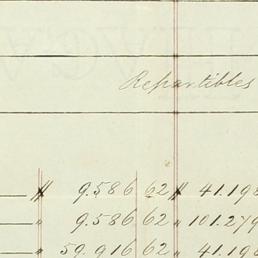 Repartibles
— $ 9.586 62 $ 41.198
— " 9.586 62 " 101.279
— " 59.916 62 " 41.198